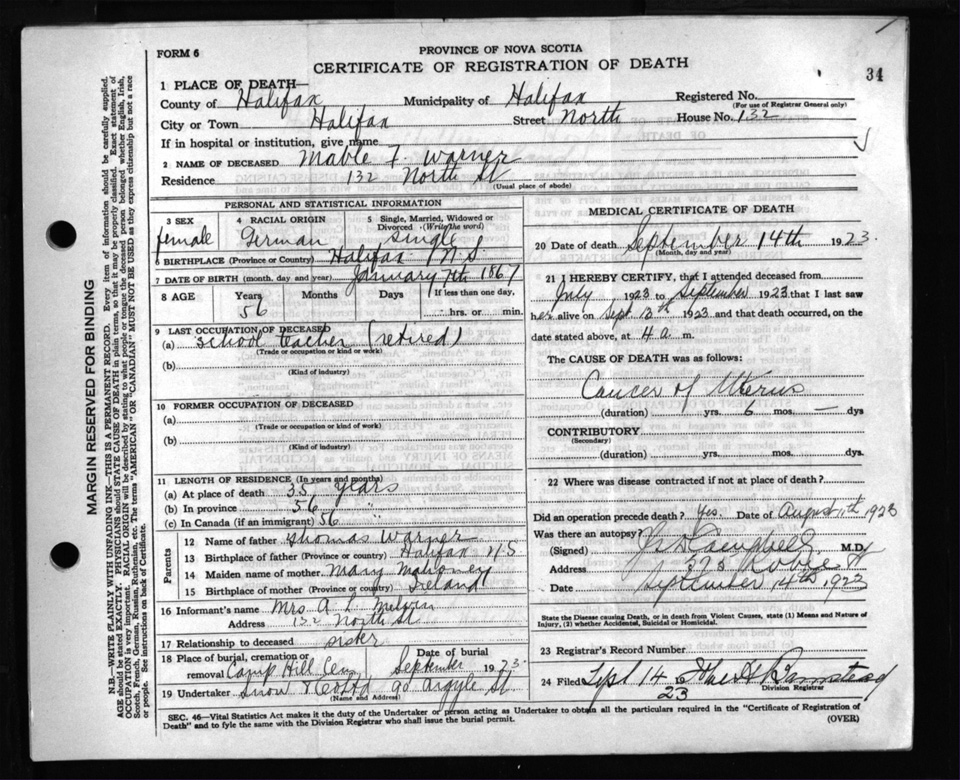 34
FORM 6
PROVINCE OF NOVA SCOTIA
CERTIFICATE OF REGISTRATION OF DEATH
1 PLACE OF DEATH—
County of Halifax Municipality of Halifax Registered No.
(For use of Registrar General only)
City or Town Halifax Street North House No. 132
If in hospital or institution, give name
2 NAME OF DECEASED Mable F. Warner
Residence 132 North St
(Usual place of abode)
PERSONAL AND STATISTICAL INFORMATION
3 SEX 4 RACIAL ORIGIN 5 Single, Married, Widowed or Divorced (Write the word)
female German single
6 BIRTHPLACE (Province or Country) Halifax N.S
7 DATE OF BIRTH (month, day and year) January 7th 1867
8 AGE Years Months Days If less than one day,
56 hrs. or min.
9 LAST OCCUPATION OF DECEASED
(a) School teacher (retired)
(Trade or occupation or kind or work)
(b)
(Kind of industry)
10 FORMER OCCUPATION OF DECEASED
(a)
(Trade or occupation or kind or work)
(b)
(Kind of industry)
11 LENGTH OF RESIDENCE (In years and months)
(a) At place of death 35 years
(b) In province 56 "
(c) In Canada (if an immigrant) 56
Parents
12 Name of father Thomas Warner
13 Birthplace of father (Province or country) Halifax N S
14 Maiden name of mother Mary Mahoney
15 Birthplace of mother (Province or country) Ireland
16 Informant's name Mrs A. L.
Address 132 North St
17 Relationship to deceased sister
18 Place of burial, cremation or removal Camp Hill Cem Date of burial September 1923
19 Undertaker Snow & Co Ltd 90 Argyle St.
(Name and Address)
MEDICAL CERTIFICATE OF DEATH
20 Date of death September 14th 1923.
(Month, day and year)
21 I HEREBY CERTIFY, that I attended deceased from
July 1923 to September 1923 that I last saw
her alive on Sept 13th 1923 and that death occurred, on the
date stated above, at 4 a m.
The CAUSE OF DEATH was as follows:
Cancer of Uterus
(duration) yrs. 6 mos. — dys
CONTRIBUTORY
(Secondary)
(duration) yrs. mos. dys.
22 Where was disease contracted if not at place of death?
Did an operation precede death? Yes. Date of August 11th 1923
Was there an autopsy?
(Signed) Campbell M.D.
Address 373 Robie St
Date September 14th 1923
State the Disease causing Death, or in death from Violent Causes, state (1) Means and Nature of Injury, (2) whether Accidental, Suicidal or Homicidal.
23 Registrar's Record Number
24 Filed Sept 14
23 Division Registrar
SEC. 46—Vital Statistics Act makes it the duty of the Undertaker or person acting as Undertaker to obtain all the particulars required in the "Certificate of Registration of
Death" and to fyle the same with the Division Registrar who shall issue the burial permit.
(OVER)
MARGIN RESERVED FOR BINDING
N.B.—WRITE PLAINLY WITH UNFADING INK—THIS IS A PERMANENT RECORD. Every item of information should be carefully supplied.
AGE should be stated EXACTLY. PHYSICIANS should STATE CAUSE OF DEATH in plain terms, so that it may be properly classified. Exact statement of
OCCUPATION is very important. RACIAL ORIGIN will be described by stating to what people or tongue the deceased person belonged whether English, Irish,
Scotch, French, German, Russian, Ruthenian, etc. The terms "AMERICAN" OR "CANADIAN" MUST NOT BE USED as they express citizenship but not a race
or people. See instructions on back of Certificate.